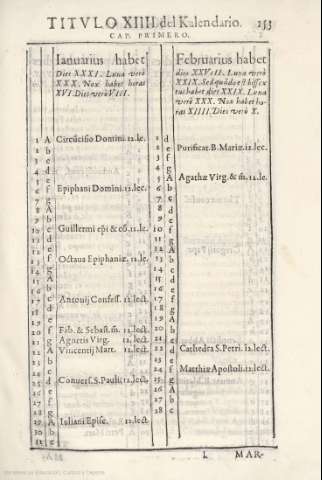 TITVLO XIIII. del Kalendario. 153
CAP. PRIMERO.
Ianuarius habet
Dies XXXI. Luna verò
XXX. Nox habet horas
XVI. Dies verò VIII.
1 A Circũcisio Domini. 12. le.
2 b
3 c
4 d
5 e
6 f Epiphani Domini. 12. lec.
7 g
8 A
9 b
10 c Guillermi epi & cõ. 12. le.
11 d
12 e
13 f Octaua Epiphaniæ. 12. le.
14 g
15 A
16 b
17 c Antonij Confess. 12. lect.
18 d
19 e
20 f Fab. & Sebast. m. 12. lect.
21 g Agnetis Virg. 12. lect.
22 A Vincentij Mart. 12. lect.
23 b
24 c
25 d Conuers. S. Pauli. 12. lect.
26 e
27 f
28 g
29 A Iuliani Episc. 12. lect.
30 b
31 c
Februarius habet
dies XXVIII. Luna verò
XXIX. Sed quãdo est bissex
tus habet dies XXIX. Luna
verò XXX. Nox habet ho
ras XIIII. Dies verò X.
1 d
2 e Purificat. B. Mariæ. 12. lec.
3 f
4 g
5 A Agathæ Virg. & m. 12. le.
6 b
7 c
8 d
9 e
10 f
11 g
12 A
13 b
14 c
15 d
16 e
17 f
18 g
19 A
20 b
21 c
22 d Cathedra S. Petri. 12. lect.
23 e
24 f Matthiæ Apostoli. 12. lect.
25 g
26 A
27 b
28 c
L MAR-
Ministerio de Educación, Cultura y Deporte